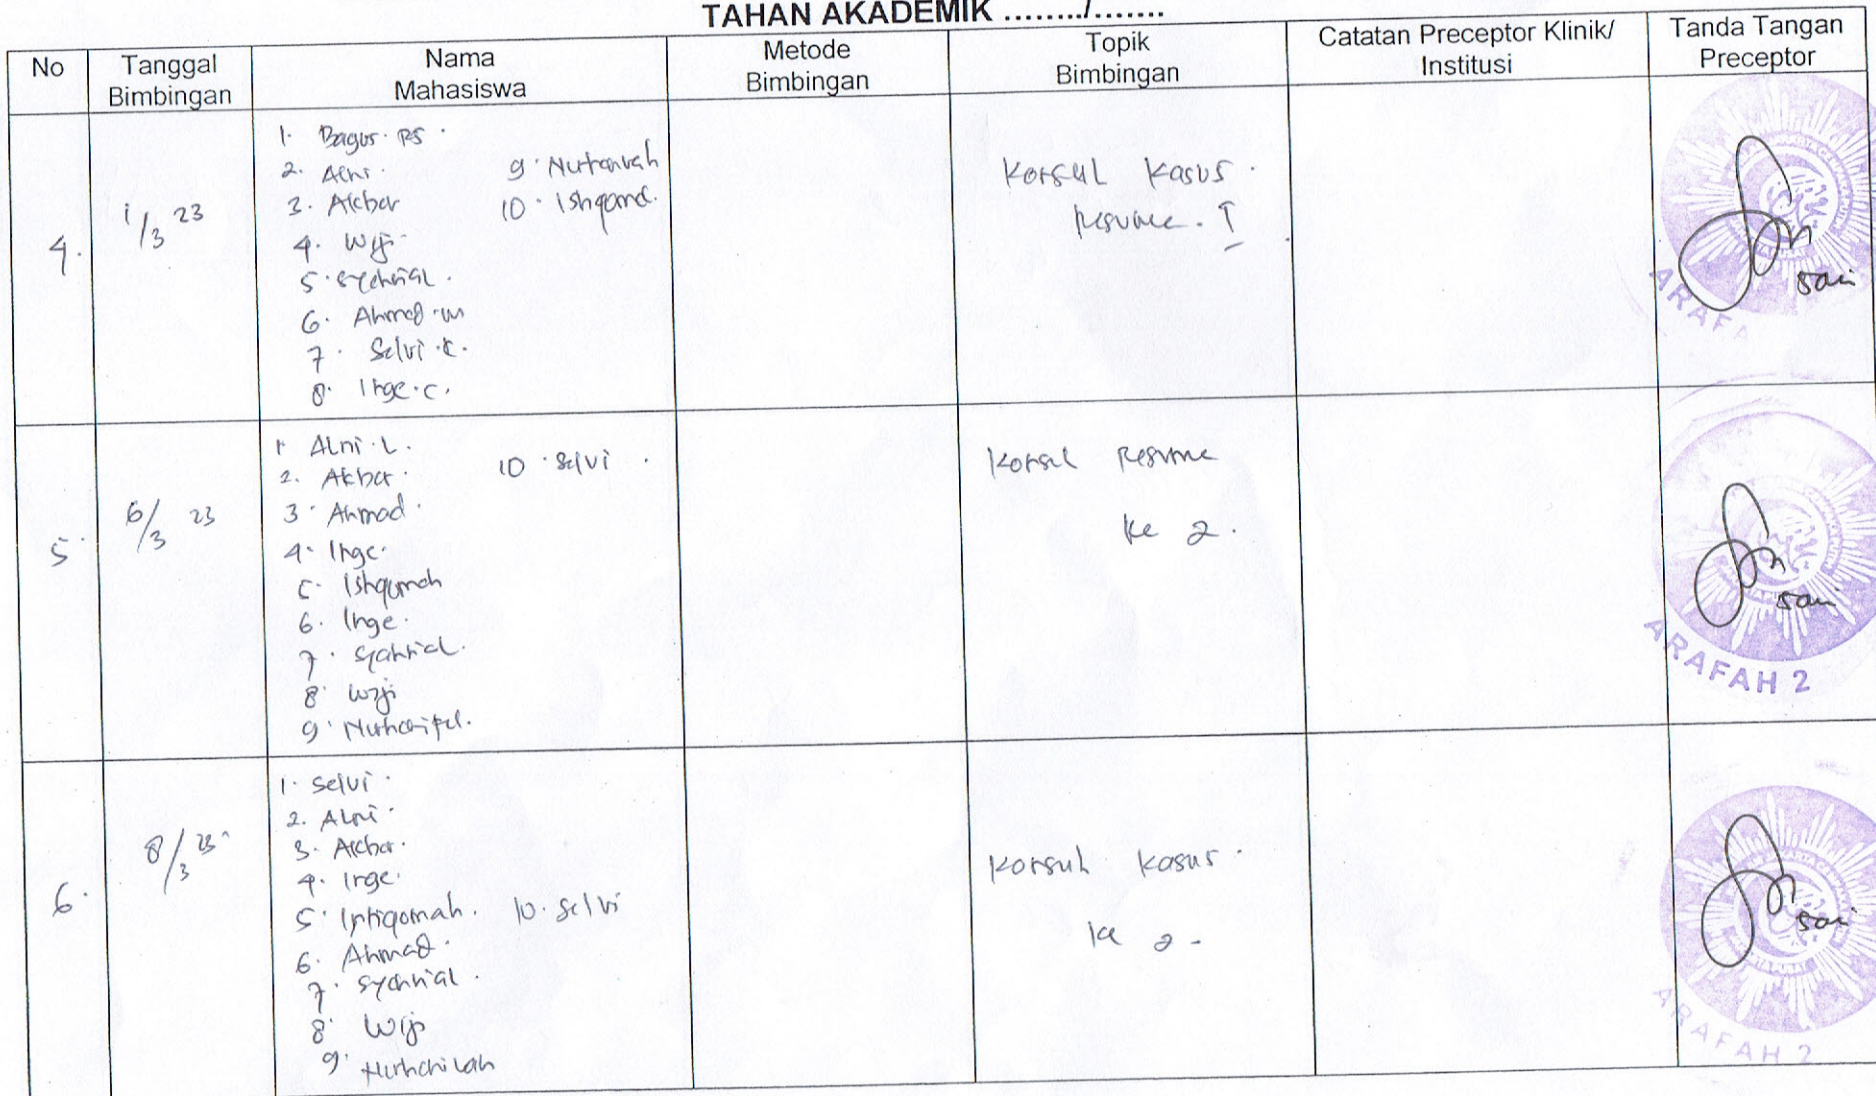 TAHAN AKADEMIK ......../.......
No
Tanggal Bimbingan
Nama Mahasiswa
Metode Bimbingan
Topik Bimbingan
Catatan Preceptor Klinik/ Institusi
Tanda Tangan Preceptor
4.
1/3 23
1. Bagus. RS.
2. Alni.
3. Akbar
4. Wiji
5. Syahrial.
6. Ahmad. M
7. Selvi. K.
8. Inge. C.
9.
10. Ishqomah.
Konsul Kasus.
Resume. I
Sari
ARAFA
5.
6/3 23
1. Alni. L.
2. Akbar.
3. Ahmad.
4. Inge.
5. Ishqomah
6. Inge.
7. Syahrial.
8. Wiji
9.
10. Selvi.
Konsul Resume
ke 2.
Sari
ARAFAH 2
6.
8/3 23
1. Selvi.
2. Alni.
3. Akbar.
4. Inge.
5. Intiqomah.
6. Ahmad.
7. Syahrial.
8. Wiji
9.
10. Selvi
Konsul Kasus.
ke 2.
Sari
ARAFAH 2